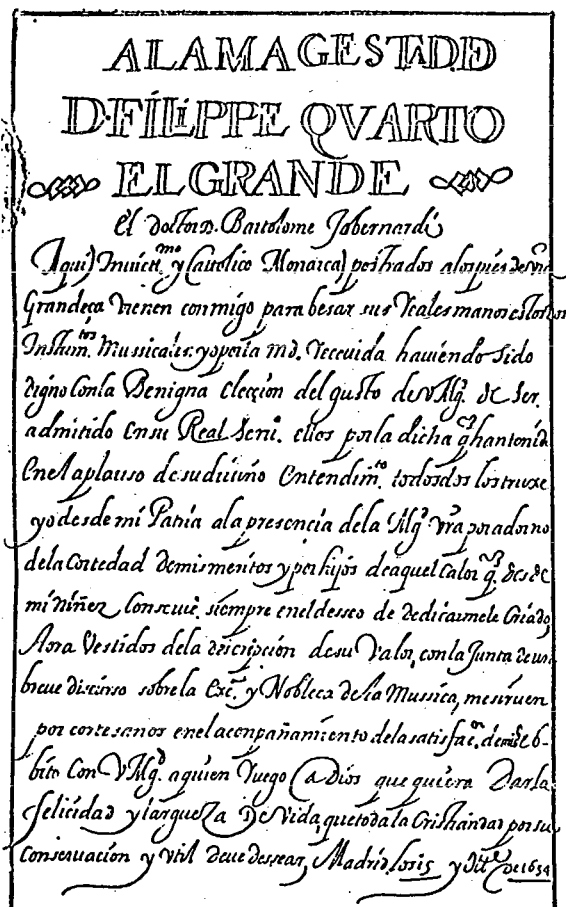 A LA MAGESTAD D
D. FÍLIPPE QVARTO
EL GRANDE
El Doctor D. Bartolome Jobernardi
Aqui) Invict.mo y Cattolico Monarca) postrados a los pies de vra
Grandeça vienen conmigo para besar sus Reales manos estos dos
Instum.tos Mussicales: yo por la md. recevida haviendo sido
digno con la Benigna elecçion del gusto de V Mg.d de ser
admitido en su Real servi.o ellos por la dicha q han tenido
en el aplauso de su divino Entendim.to todos dos los truxe
yo desde mi Patria a la presencia de la Mg.d Vra por adorno
de la Cortedad de mis meritos y por hijos de aquel Calor q. desde
mi niñez Conservé siempre en el desseo de dedicarmele Criado,
Aora Vestidos de la descripcion de su Valor, con la Junta de un
breve discurso sobre la Exc.a y Nobleca de la Mussica, me sirven
por cortesanos en el acompañamiento de la satisfac.on de mi de b-
bito Con V Mg.d a quien Ruego (a Dios que quiera Darla
felicidad y largueza De Vida, que toda la Cristiandad por su
Conservacion y Vtil deve dessear, Madrid los 15 y De 1634